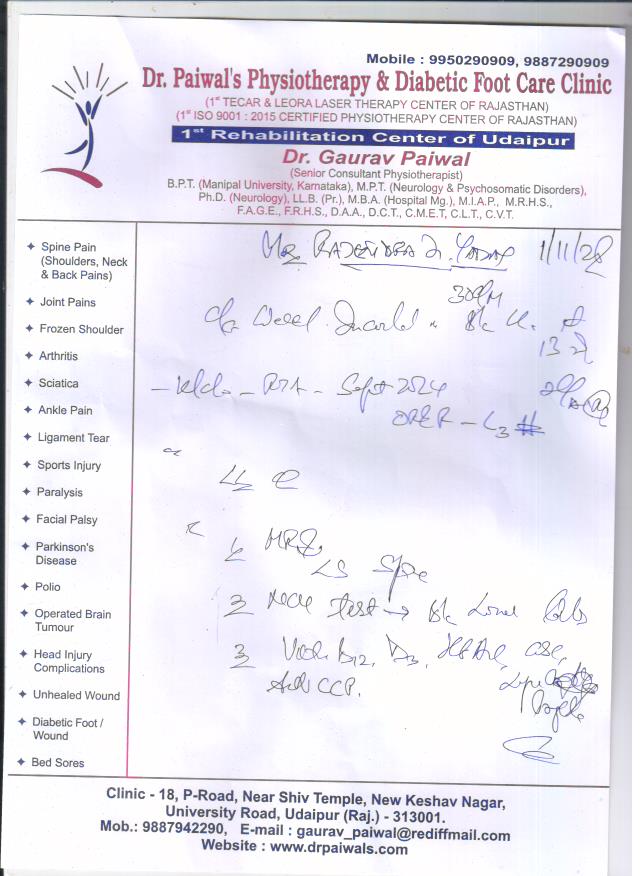 Mobile : 9950290909, 9887290909
Dr. Paiwal's Physiotherapy & Diabetic Foot Care Clinic
(1st TECAR & LEORA LASER THERAPY CENTER OF RAJASTHAN)
(1st ISO 9001 : 2015 CERTIFIED PHYSIOTHERAPY CENTER OF RAJASTHAN)
1st Rehabilitation Center of Udaipur
Dr. Gaurav Paiwal
(Senior Consultant Physiotherapist)
B.P.T. (Manipal University, Karnataka), M.P.T. (Neurology & Psychosomatic Disorders),
Ph.D. (Neurology), LL.B. (Pr.), M.B.A. (Hospital Mg.), M.I.A.P., M.R.H.S.,
F.A.G.E., F.R.H.S., D.A.A., D.C.T., C.M.E.T, C.L.T., C.V.T.
Spine Pain
(Shoulders, Neck
& Back Pains)
Joint Pains
Frozen Shoulder
Arthritis
Sciatica
Ankle Pain
Ligament Tear
Sports Injury
Paralysis
Facial Palsy
Parkinson's
Disease
Polio
Operated Brain
Tumour
Head Injury
Complications
Unhealed Wound
Diabetic Foot /
Wound
Bed Sores
Mr RAJENDRA YADAV
RTA - Sept 2024
L3 #
MRI
LS Spine
test → Lower limbs
B12, D3,
Anti CCP.
Clinic - 18, P-Road, Near Shiv Temple, New Keshav Nagar,
University Road, Udaipur (Raj.) - 313001.
Mob.: 9887942290, E-mail : gaurav_paiwal@rediffmail.com
Website : www.drpaiwals.com